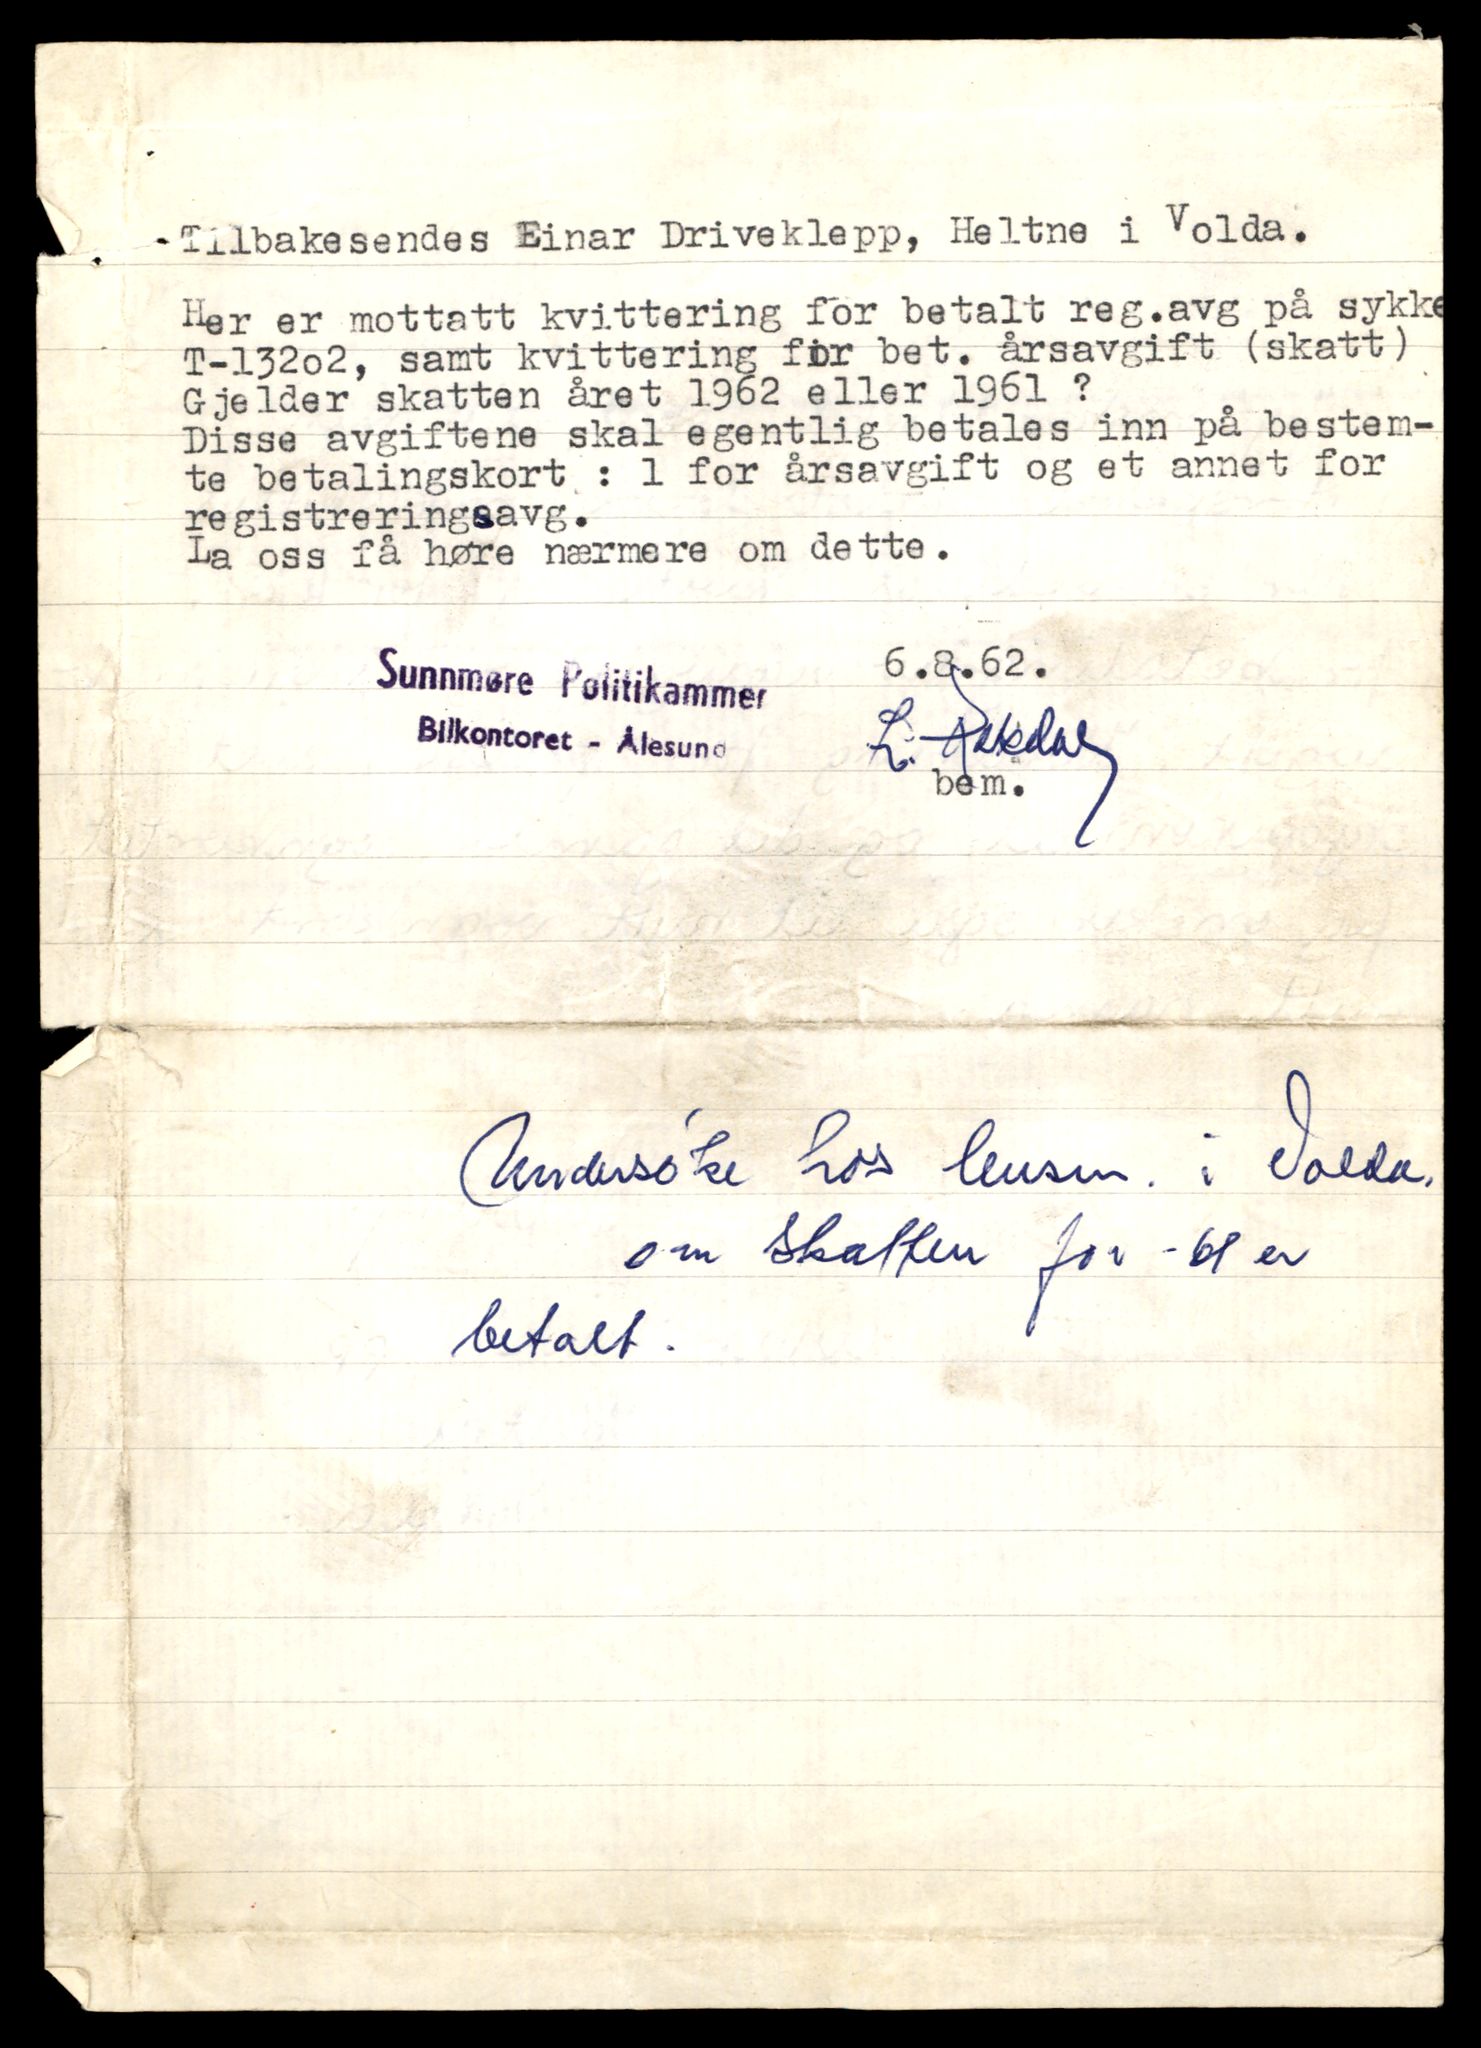 Tilbakesendes Einar Driveklepp, Heltne i Volda.
Her er mottatt kvittering for betalt reg.avg på sykke
T-132o2, samt kvittering for bet. årsavgift (skatt)
Gjelder skatten året 1962 eller 1961 ?
Disse avgiftene skal egentlig betales inn på bestem-
te betalingskort : 1 for årsavgift og et annet for
registreringsavg.
La oss få høre nærmere om dette.
6.8.62.
Sunnmøre Politikammer
Bilkontoret - Ålesund
L.
bem.
Undersöke hos lensm. i Volda.
om skatten for -61 er
betalt.